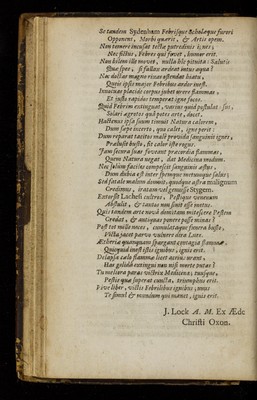 Se tandem Sydenham Febrisque Scholæque furori
Opponens, Morbi quærit, & Artis opem.
Non temerè incusat tectæ putredinis ignes;
Nec fictus, Febres qui fovet, humor erit.
Non bilem ille movet, nulla hîc pituita: Salutis
Quæ spes, si fallax ardeat intus aqua?
Nec doctas magno rixas ostendat hiatu,
Quîs ipsis major Febribus ardor inest.
Innocuas placide corpus jubet urere flammas,
Et justo rapidos temperat igne focos.
Quid Febrim extinguat, varius quid postulat usus,
Solari ægrotos quâ potes arte, docet.
Hactenus ipsa suum timuit Natura calorem,
Dum sæpe incerto, quo calet, igne perit:
Dum reparat tacitos malè provida sanguinis ignes,
Prælusit busto, fit calor iste rogus.
Jam secura suas foveant præcordia flammas,
Quem Natura negat, dat Medicina modum.
Nec solum faciles compescit sanguinis æstus,
Dum dubia est inter spemque metumque salus;
Sed fatale malum domuit, quodque astra malignum
Credimus, iratam vel genuisse Stygem.
Extorsit Lachesi cultros, Pestique venenum
Abstulit, & tantos non sinit esse metus.
Quis tandem arte novâ domitam mitescere Pestem
Credat, & antiquas ponere posse minas?
Post tot mille neces, cumulataque funera busto,
Victa jacet parvo vulnere dira Lues.
Ætheriæ quanquam spargunt contagia flammæ,
Quicquid inest istis ignibus, ignis erit.
Delapsæ cœlo flammæ licet acriùs urant,
Has gelida extingui non nisi morte putas?
Tu meliora paras victrix Medicina; tuusque,
Pestis quæ superat cuncta, triumphus erit.
Vive liber, victis Febrilibus ignibus; unus
Te simul & mundum qui manet, ignis erit.
J. Lock A. M. Ex Æde
Christi Oxon.